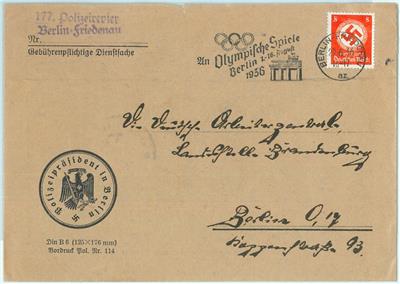 177. Polizeirevier
Berlin-Friedenau
Nr.
Gebührenpflichtige Dienstsache
An
Olympische Spiele
Berlin 1.-16. August
1936
BERLIN
az
8 8
Deutsches Reich
An die Deutsche Arbeiterzentrale,
Landesstelle Brandenburg
Berlin O, 17
Koppenstraße 93.
Polizeipräsident in Berlin
Din B 6 (125×176 mm)
Vordruck Pol. Nr. 114